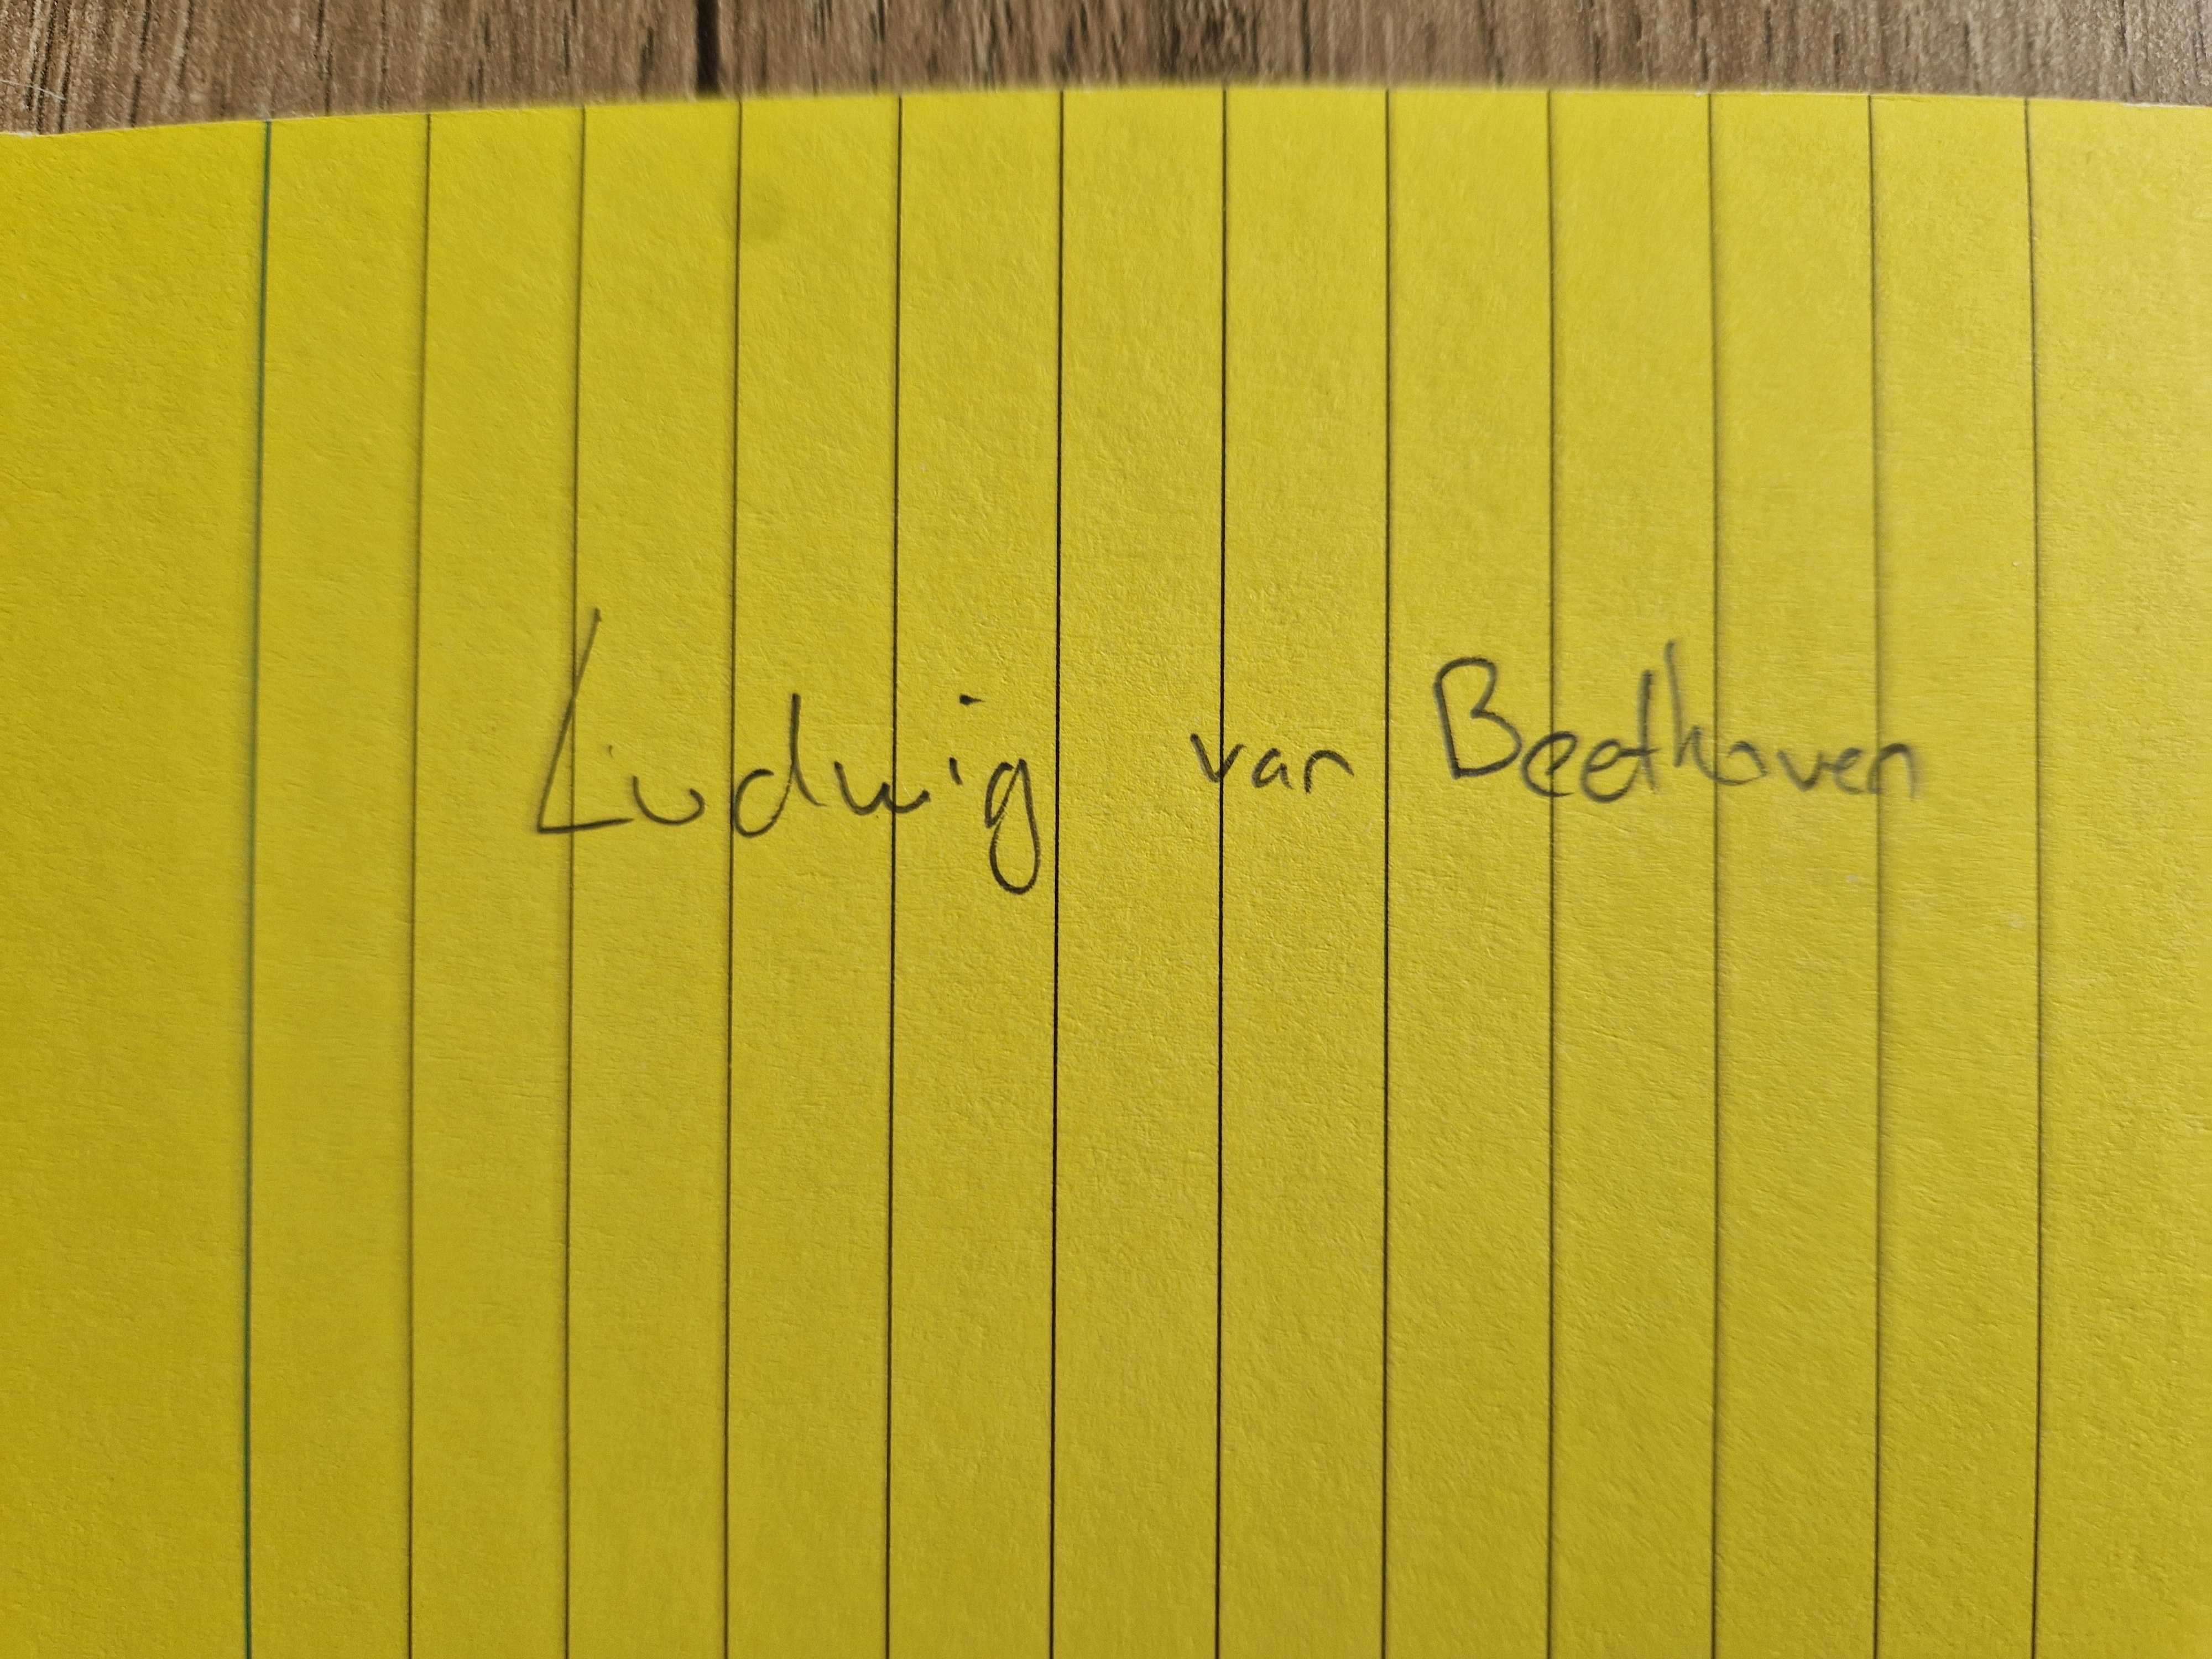 Ludwig van Beethoven